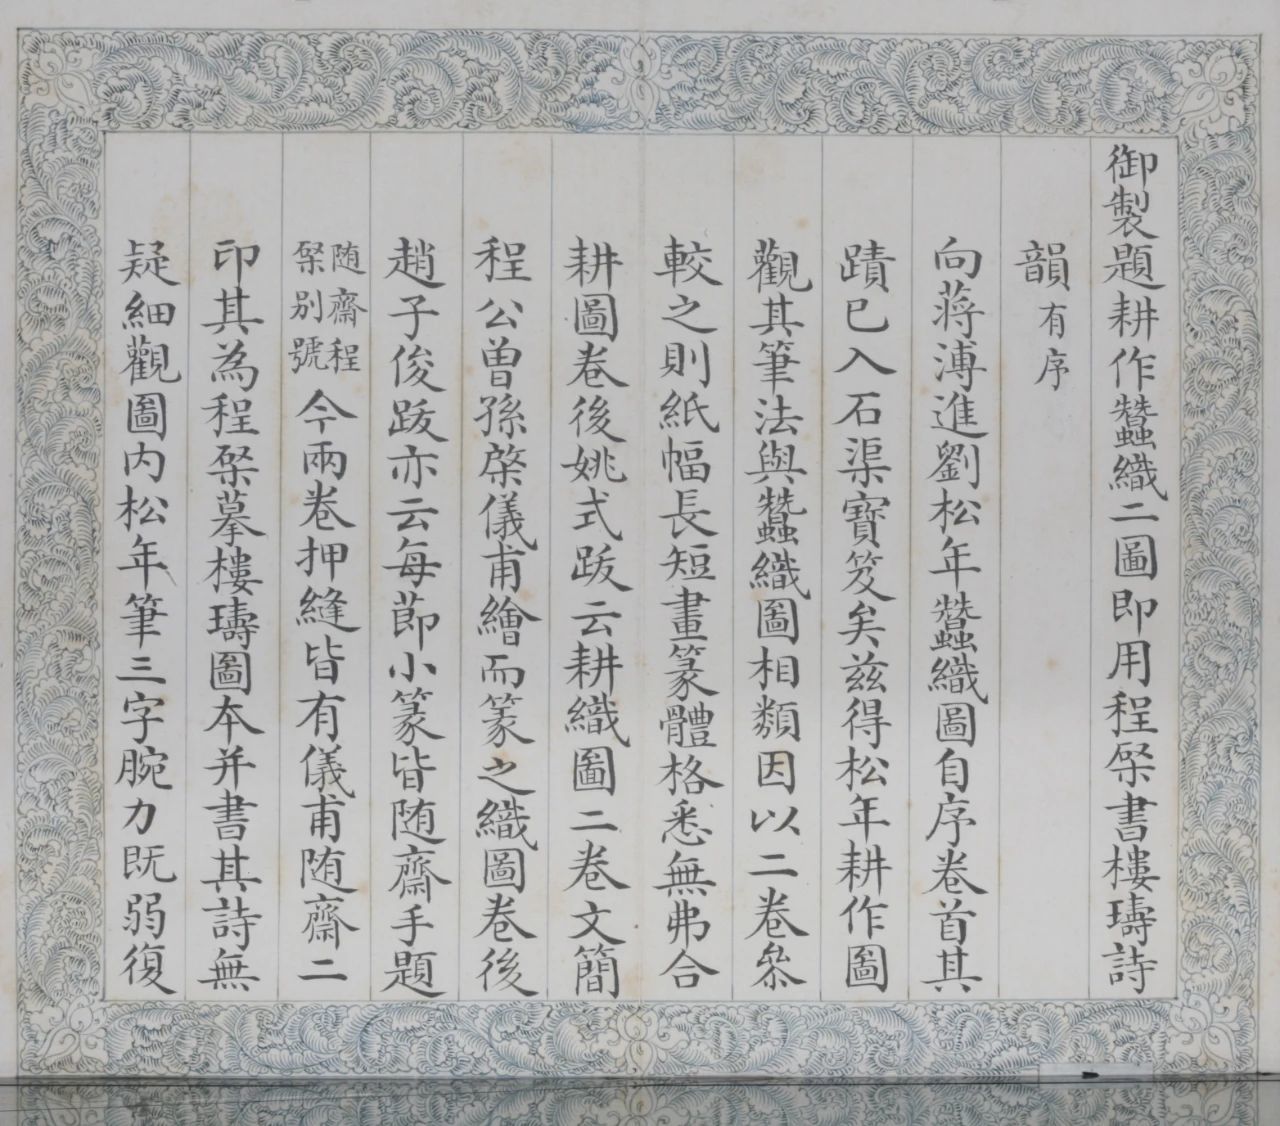 御製題耕作蠶織二圖即用程棨書樓璹詩
韻有序
向蔣溥進劉松年蠶織圖自序卷首其
蹟已入石渠寶笈矣兹得松年耕作圖
觀其筆法與蠶織圖相類因以二卷叅
較之則紙幅長短畫篆體格悉無弗合
耕圖卷後姚式跋云耕織圖二卷文簡
程公曾孫棨儀甫繪而篆之織圖卷後
趙子俊跋亦云每莭小篆皆随齋手題
随齋程棨别號今兩卷押縫皆有儀甫随齋二
印其為程棨摹樓璹圖本并書其詩無
疑細觀圖内松年筆三字腕力既弱復